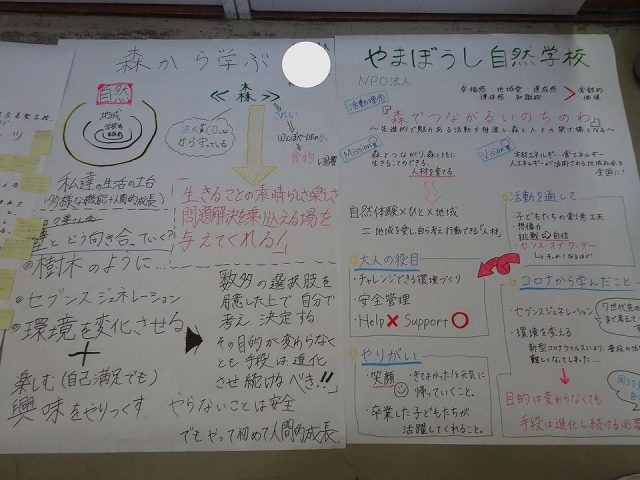 森から学ぶ
自然
地域
学校
≪森≫
洪水やCO₂
から守っている
食物
私達の生活の土台
(多様な機能+人間的成長)
とどう向き合っていく?
◎樹木のように…
◎セブンスジェネレーション
◎環境を変化させる
+
楽しむ(自己満足でも)
興味をやりつくす.
「生きることの素晴らしさ楽しさ
問題解決を乗り込える場を
与えてくれる」
数多の選択肢を
用意した上で自分で
考え、決定する.
その目的が変わらなく
とも、手段は進化
させ続けるべき!!
やらないことは安全
でもやって初めて人間的成長.
やまぼうし自然学校
NPO法人
幸福感 地域愛 達成感
金銭的
価値
活動理念
『森でつながるいのちのわ』
Mission
森とつながり、森とともに
生きることのできる、
人材を育てる
Vision
木材エネルギー・食エネルギー
全国に!
自然体験×ひと×地域
=地域を愛し、自ら考え行動できる「人材」
活動を通して……
子どもたちの創意工夫
想像力
挑戦、自信
センスオブワンダー
☆大人の役目
・チャレンジできる環境づくり
・安全管理
・Help× Support○
☆やりがい
・笑顔
・きてよかった!と元気に
帰っていくこと。
・卒業した子どもたちが
活躍してくれること。
☆コロナから学んだこと
・セブンスジェネレーション
7世代先の
まで考えて
・環境を変える
新型コロナウイルスにより、普段の活
難しくなってしまった…
目的は変わらなくても
手段は進化し続ける必要